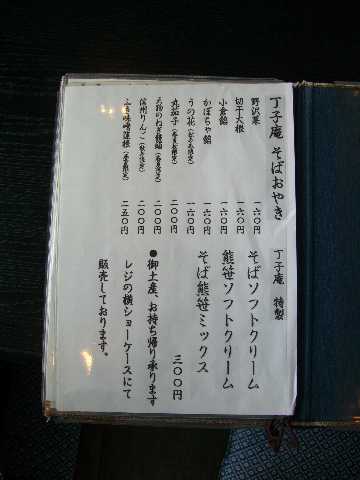 丁子庵 そばおやき
野沢菜 一六〇円
切干大根 一六〇円
小倉餡 一六〇円
かぼちゃ餡 一六〇円
うの花 一六〇円
丸茄子 二〇〇円
二〇〇円
信州りんご 二〇〇円
ふき味噌蓮根 二五〇円
丁子庵 特製
そばソフトクリーム
熊笹ソフトクリーム
そば熊笹ミックス
三〇〇円
●御土産、お持ち帰り承ります
レジの横ショーケースにて
販売しております。